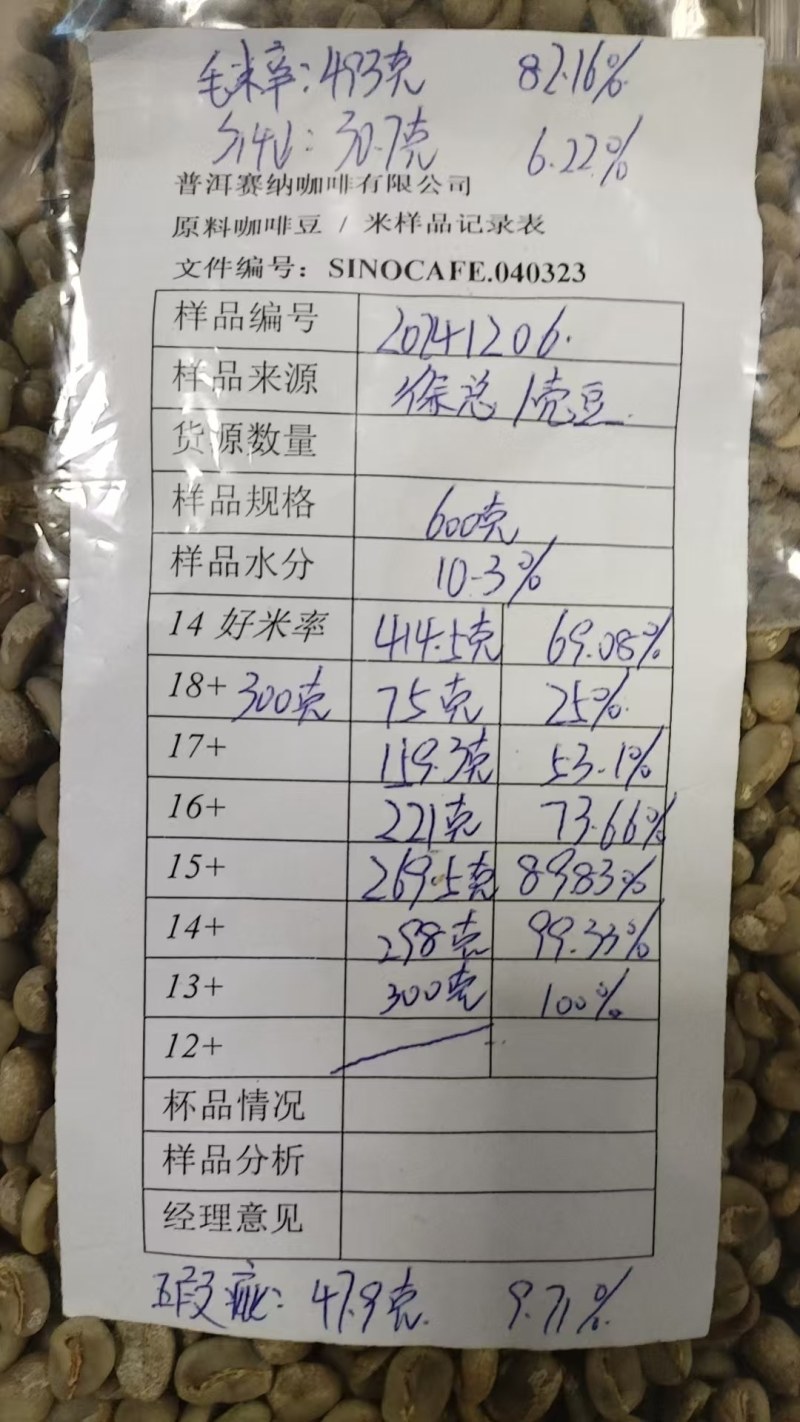 毛米率:493克 82.16%
外14山: 30.7克 6.22%
普洱赛纳咖啡有限公司
原料咖啡豆 / 米样品记录表
文件编号: SINOCAFE.040323
样品编号 20241206.
样品来源 徐总 1壳豆.
货源数量
样品规格 600克
样品水分 10.3%
14 好米率 414.5克 69.08%
18+ 300克 75克 25%
17+ 159.3克 53.1%
16+ 221克 73.66%
15+ 269.5克 89.83%
14+ 298克 99.33%
13+ 300克 100%
12+
杯品情况
样品分析
经理意见
瑕疵: 47.9克. 9.71%